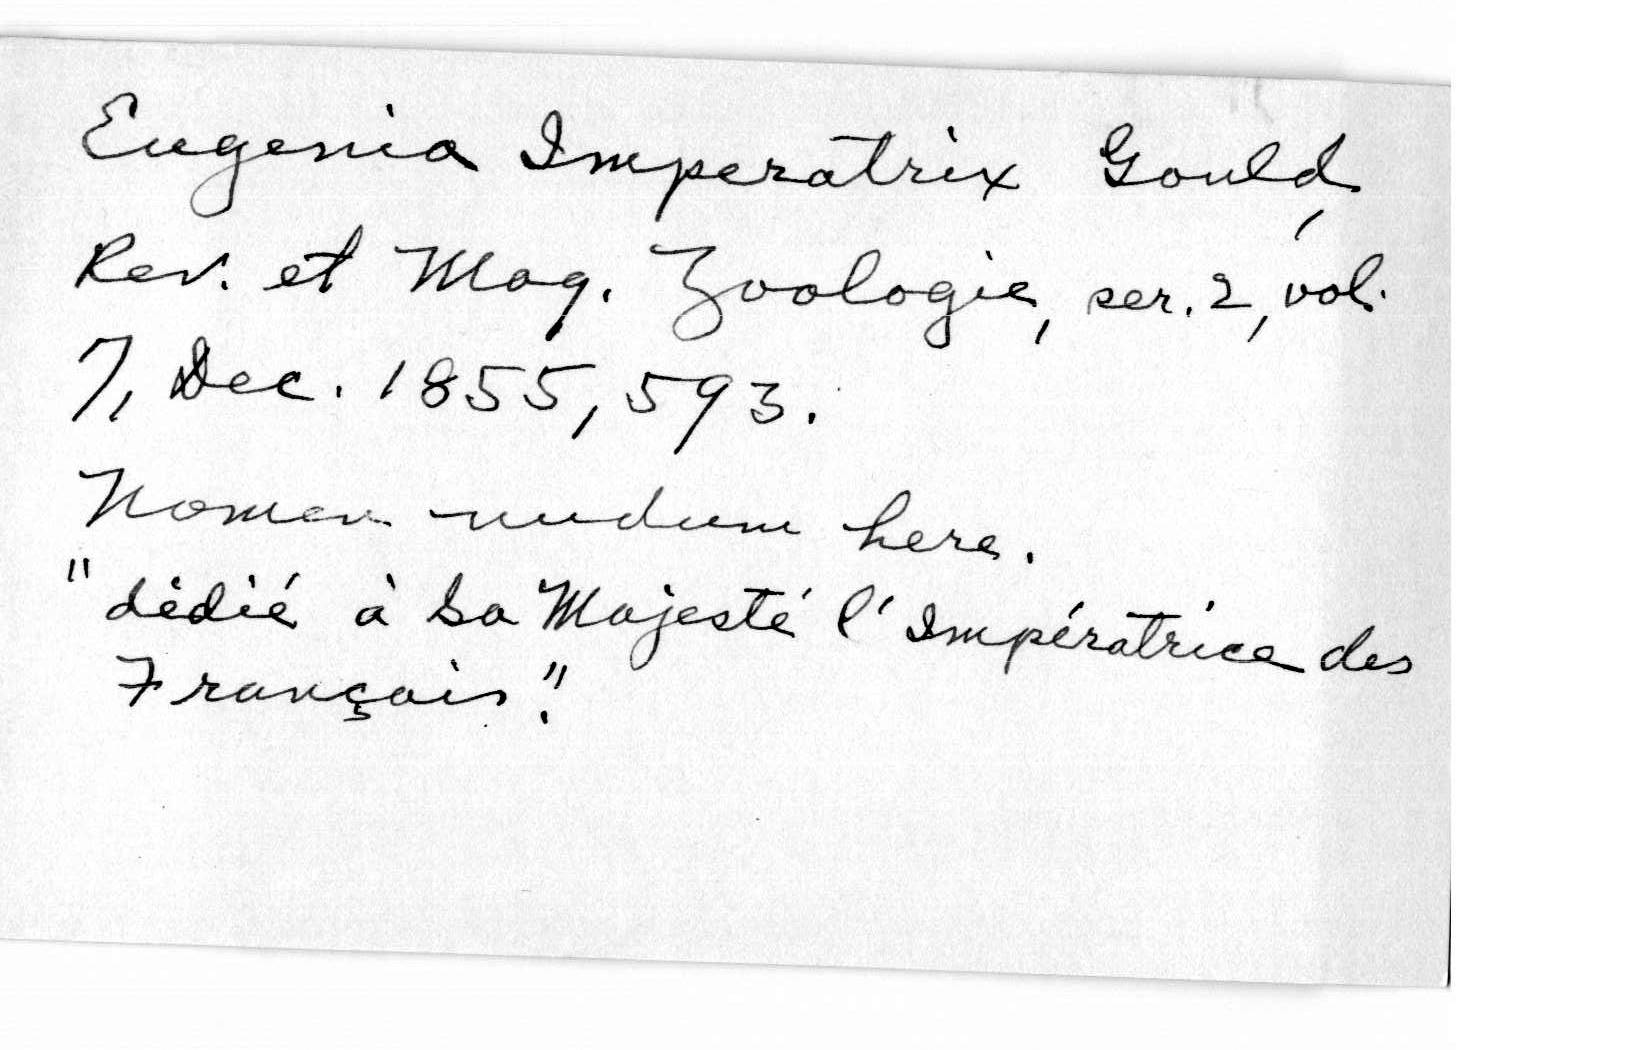 Eugenia Imperatrix Gould,
Rev. et Mag. Zoologie, ser. 2, vol.
7, Dec. 1855, 593.
Nomen nudum here.
"dédié à Sa Majesté l'Impératrice des
Français".